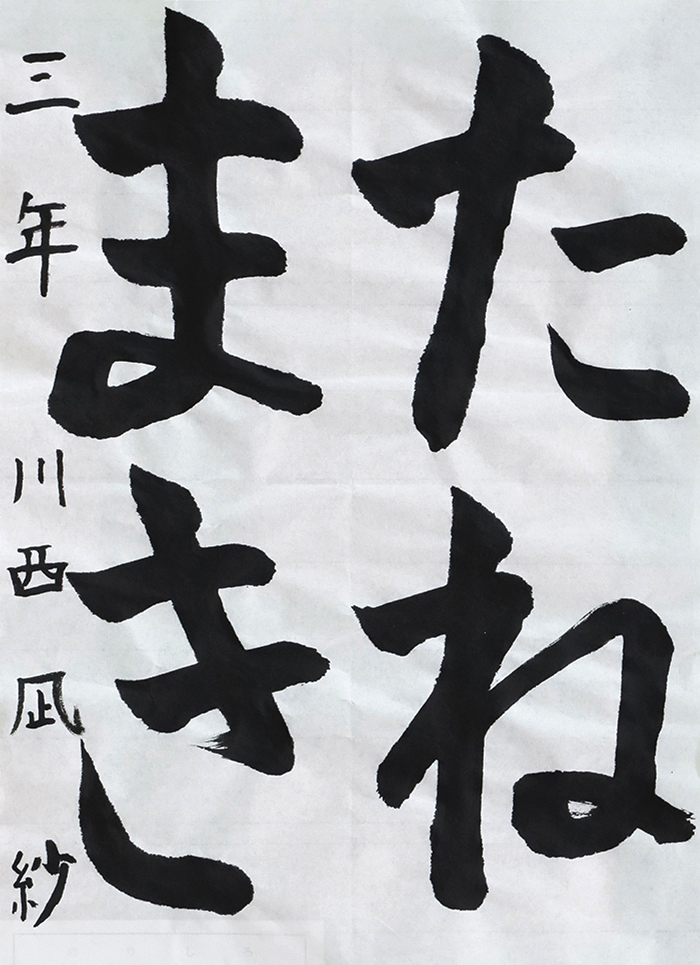 たね
まき
三年 川西凪紗